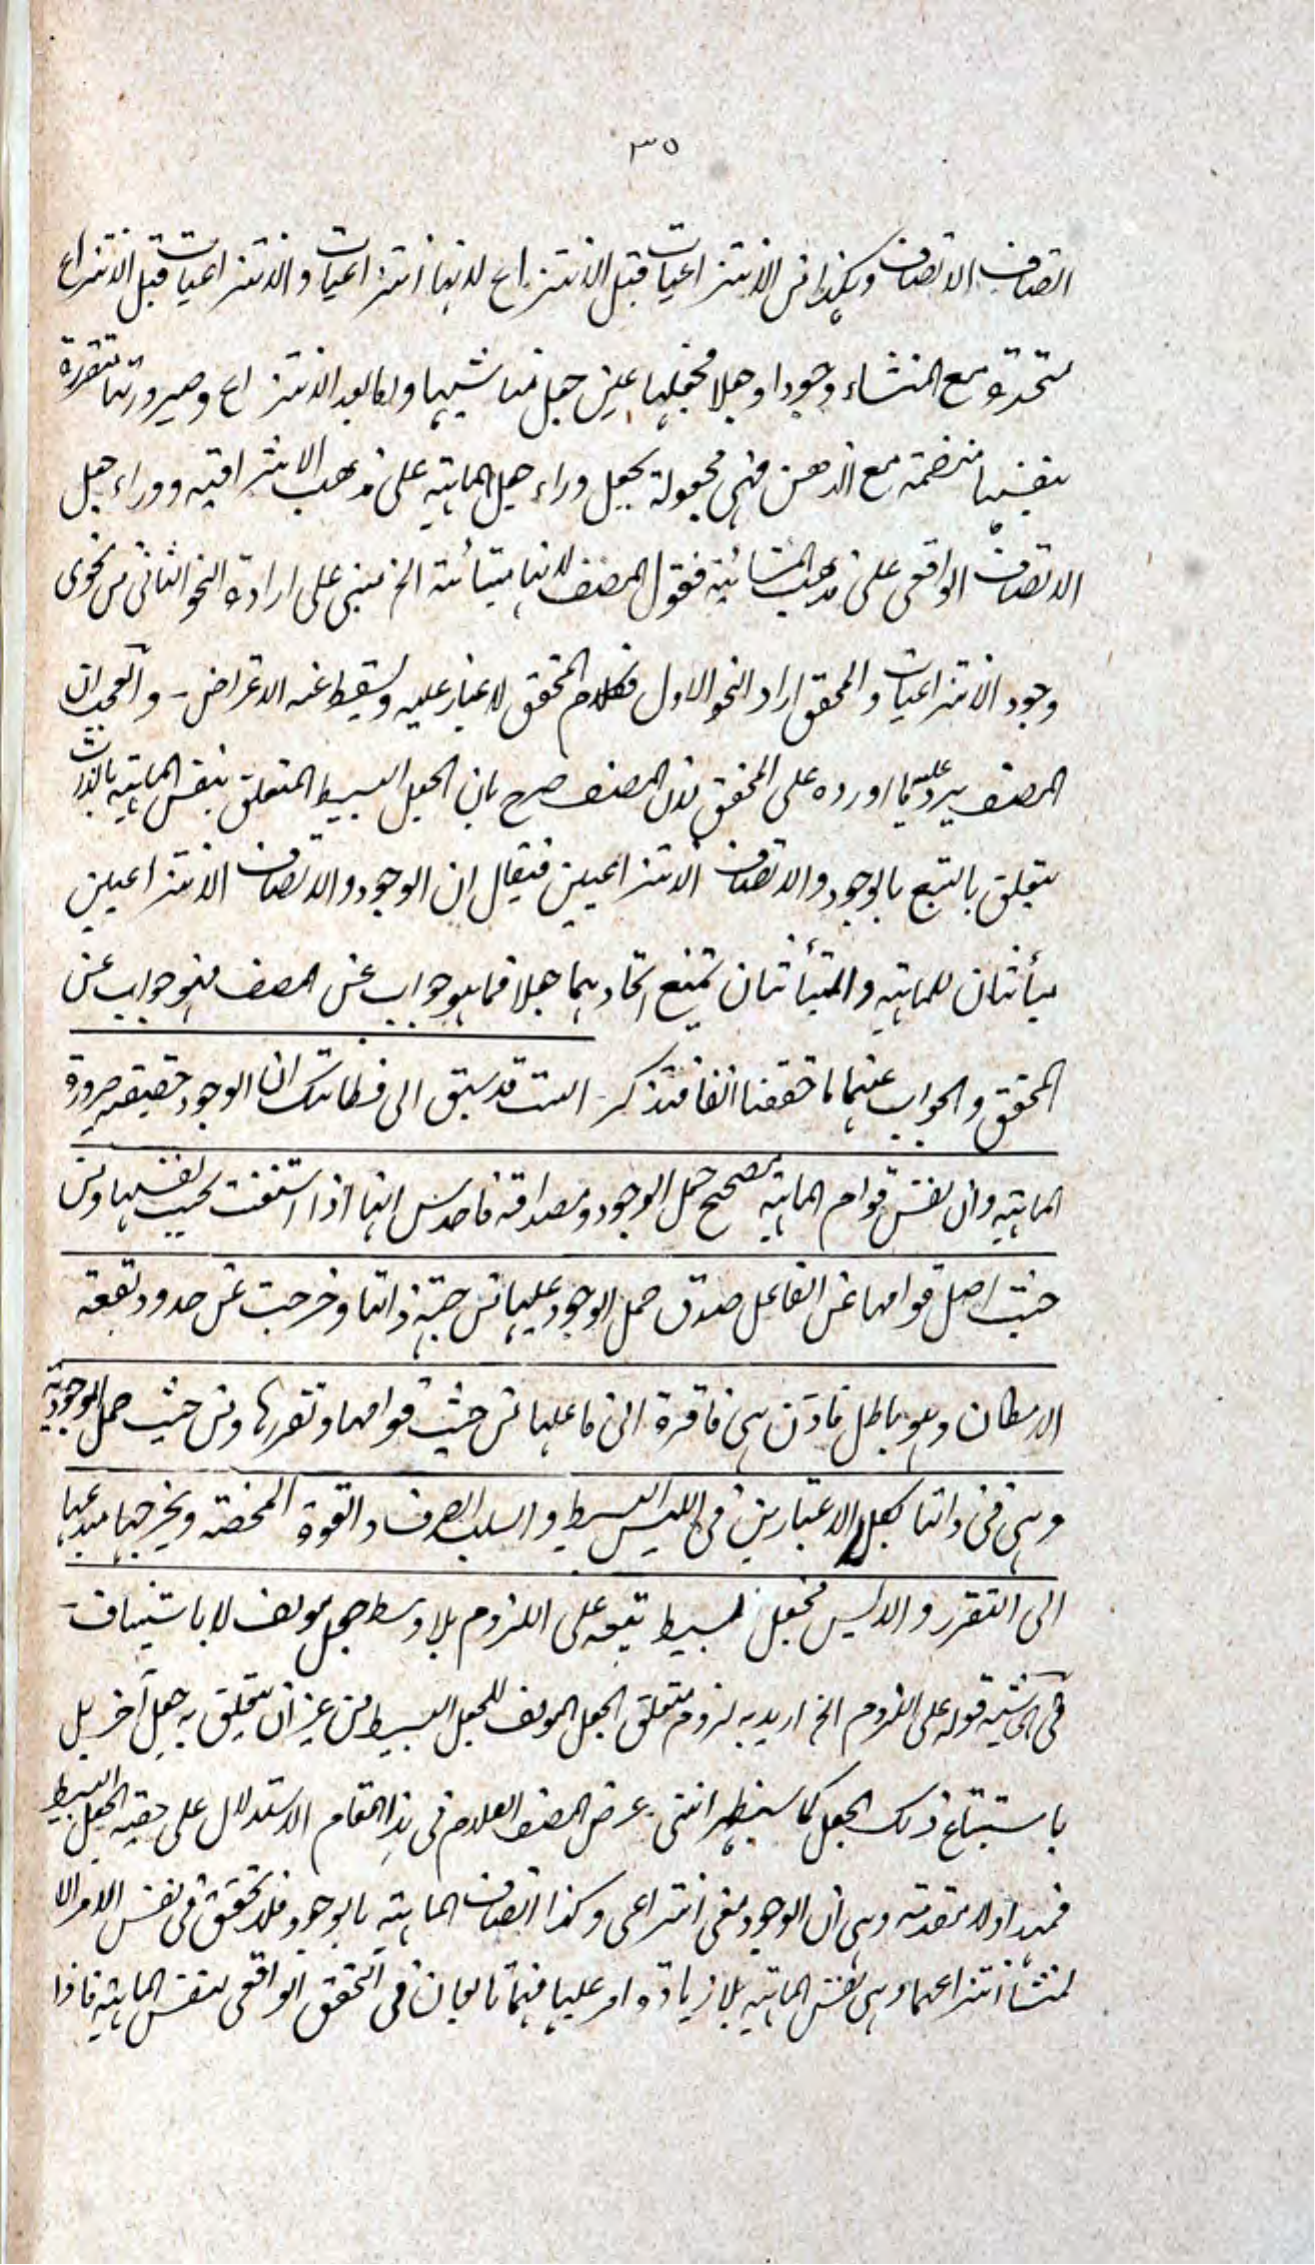 ٣٥
اتصاف الاتصاف وهكذا من الانتزاعيات قبل الانتزاع لانها انتزاعيات والانتزاعيات قبل الانتزاع
متحدة مع المنشاء وجودا وجعلا فجعلها عين جعل مناشيها واما بعد الانتزاع وصيرورتها متقررة
بنفسها منضمة مع الذهن فهي مجعولة بجعل وراء جعل الماهية على مذهب الاشراقية ووراء جعل
الاتصاف الواقعي على مذهب المشائية فقول المصنف لانها متبائنة الخ مبني على ارادة النحو الثاني من نحوي
وجود الانتزاعيات والمحقق اراد النحو الاول فكلام المحقق لا غبار عليه ويسقط عنه الاعتراض - والعجب ان
المصنف يرد عليه ما اورده على المحقق لان المصنف صرح بان الجعل البسيط المتعلق بنفس الماهية بالذات
يتعلق بالتبع بالوجود والاتصاف الانتزاعيين فيقال ان الوجود والاتصاف الانتزاعيين
مبائنان للماهية والمتبائنان يمتنع اتحادهما جعلا فما هو جواب عن المصنف فهو جواب عن
المحقق والجواب عنهما ما حققنا انفا فتذكر - الست قد سبق الى فطانتك ان الوجود حقيقته صيرورة
الماهية وان نفس قوام الماهية مصحح حمل الوجود ومصداقه فاحدس انها اذا استغنت بحسب نفسها ومن
حيث اصل قوامها عن الفاعل صدق حمل الوجود عليها من جهة ذاتها وخرجت عن حدود بقعة
الامكان وهو باطل فاذن هي فاقرة الى فاعلها من حيث قوامها وتقررها ومن حيث حمل الموجودية
وهي في ذاتها بكلا الاعتبارين في الليس البسيط والسلب الصرف والقوة المحضة ويخرجها مبدعها
الى التقرر والايس بجعل بسيط يتبعه على اللزوم بلا وسط جعل مولف لا باستيناف -
في الحاشية قوله على اللزوم الخ اريد به لزوم متعلق الجعل المولف للجعل البسيط من غير ان يتعلق به جعل آخر بل
باستتباع ذلك الجعل كما سيظهر انتهى - غرض المصنف العلام في هذا المقام الاستدلال على حقية الجعل البسيط
فمهد اولا مقدمة وهي ان الوجود معنى انتزاعي وكذا اتصاف الماهية بالوجود فلا تحقق في نفس الامر الا
لمنشأ انتزاعهما وهي نفس الماهية بلا زيادة امر عليها فهما تابعان في التحقق الواقعي لنفس الماهية فاذا